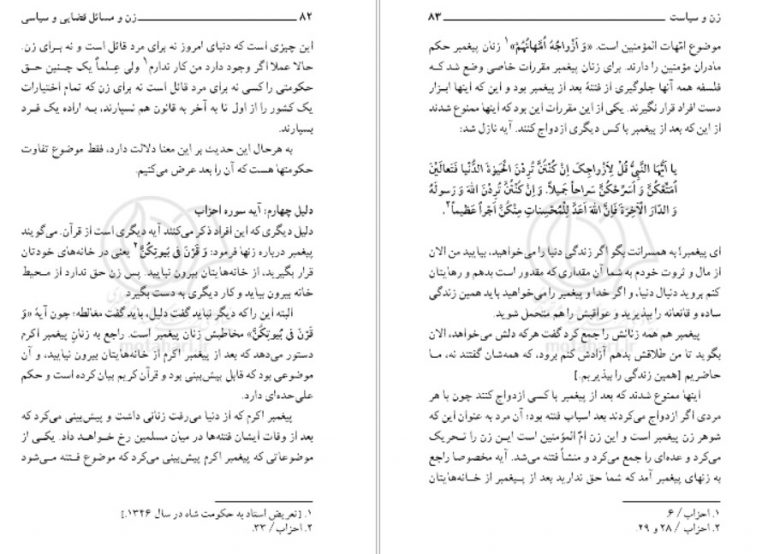 ۸۲ زن و مسائل قضایی و سیاسی
این چیزی است که دنیای امروز نه برای مرد قائل است و نه برای زن.
حالا عملا اگر وجود دارد من کار ندارم۱ ولی عِلماً یک چنین حق
حکومتی را کسی نه برای مرد قائل است نه برای زن که تمام اختیارات
یک کشور را از اول تا به آخر به قانون هم نسپارند، به اراده یک فرد
بسپارند.
به هرحال این حدیث بر این معنا دلالت دارد، فقط موضوع تفاوت
حکومتها هست که آن را بعد عرض می‌کنیم.
دلیل چهارم: آیه سوره احزاب
دلیل دیگری که این افراد ذکر می‌کنند آیه دیگری است از قرآن. می‌گویند
پیغمبر درباره زنها فرمود: وَ قَرْنَ فی بُیوتِکُنَّ۲ یعنی در خانه‌های خودتان
قرار بگیرید، از خانه‌هایتان بیرون نیایید. پس زن حق ندارد از محیط
خانه بیرون بیاید و کار دیگری به دست بگیرد.
البته این را که دیگر نباید گفت دلیل، باید گفت مغالطه؛ چون آیهٔ «وَ
قَرْنَ فی بُیوتِکُنَّ» مخاطبش زنان پیغمبر است. راجع به زنانِ پیغمبر اکرم
دستور می‌دهد که بعد از پیغمبر اکرم از خانه‌هایتان بیرون نیایید، و آن
موضوعی بود که قابل پیش‌بینی بود و قرآن کریم بیان کرده است و حکم
علی‌حده‌ای دارد.
پیغمبر اکرم که از دنیا می‌رفت زنانی داشت و پیش‌بینی می‌کرد که
بعد از وفات ایشان فتنه‌ها در میان مسلمین رخ خواهد داد. یکی از
موضوعاتی که پیغمبر اکرم پیش‌بینی می‌کرد که موضوع فتنه می‌شود
۱. [تعریض استاد به حکومت شاه در سال ۱۳۴۶.]
۲. احزاب / ۳۳.
زن و سیاست ۸۳
موضوع امّهات المؤمنین است. «وَ اَزْواجُهُ اُمَّهاتُهُمْ»۱ زنان پیغمبر حکم
مادران مؤمنین را دارند. برای زنان پیغمبر مقررات خاصی وضع شد که
فلسفه همه آنها جلوگیری از فتنهٔ بعد از پیغمبر بود و این که اینها ابزار
دست افراد قرار نگیرند. یکی از این مقررات این بود که اینها ممنوع شدند
از این‌که بعد از پیغمبر با کس دیگری ازدواج کنند. آیه نازل شد:
یا اَیُّهَا النَّبِیُّ قُلْ لِاَزْواجِکَ اِنْ کُنْتُنَّ تُرِدْنَ الْحَیوةَ الدُّنْیا فَتَعالَیْنَ
اُمَتِّعْکُنَّ وَ اُسَرِّحْکُنَّ سَراحاً جَمیلاً. وَ اِنْ کُنْتُنَّ تُرِدْنَ اللّٰهَ وَ رَسولَهُ
وَ الدّارَ الْآخِرَةَ فَاِنَّ اللّٰهَ اَعَدَّ لِلْمُحْسِناتِ مِنْکُنَّ اَجْراً عَظیماً.۲
ای پیغمبر! به همسرانت بگو اگر زندگی دنیا را می‌خواهید، بیایید من الان
از مال و ثروت خودم به شما آن مقداری که مقدور است بدهم و رهایتان
کنم بروید دنبال دنیا، و اگر خدا و پیغمبر را می‌خواهید باید همین زندگی
ساده و قانعانه را بپذیرید و عواقبش را هم متحمل شوید.
پیغمبر هم همه زنانش را جمع کرد گفت هرکه دلش می‌خواهد، الان
بگوید تا من طلاقش بدهم آزادش کنم برود، که همه‌شان گفتند نه، ما
حاضریم [همین زندگی را بپذیریم.]
اینها ممنوع شدند که بعد از پیغمبر با کسی ازدواج کنند چون با هر
مردی اگر ازدواج می‌کردند بعد اسباب فتنه بود؛ آن مرد به عنوان این که
شوهر زن پیغمبر است و این زن امّ المؤمنین است این زن را تحریک
می‌کرد و عده‌ای را جمع می‌کرد و منشأ فتنه می‌شد. آیه مخصوصا راجع
به زنهای پیغمبر آمد که شما حق ندارید بعد از پیغمبر از خانه‌هایتان
۱. احزاب / ۶.
۲. احزاب / ۲۸ و ۲۹.